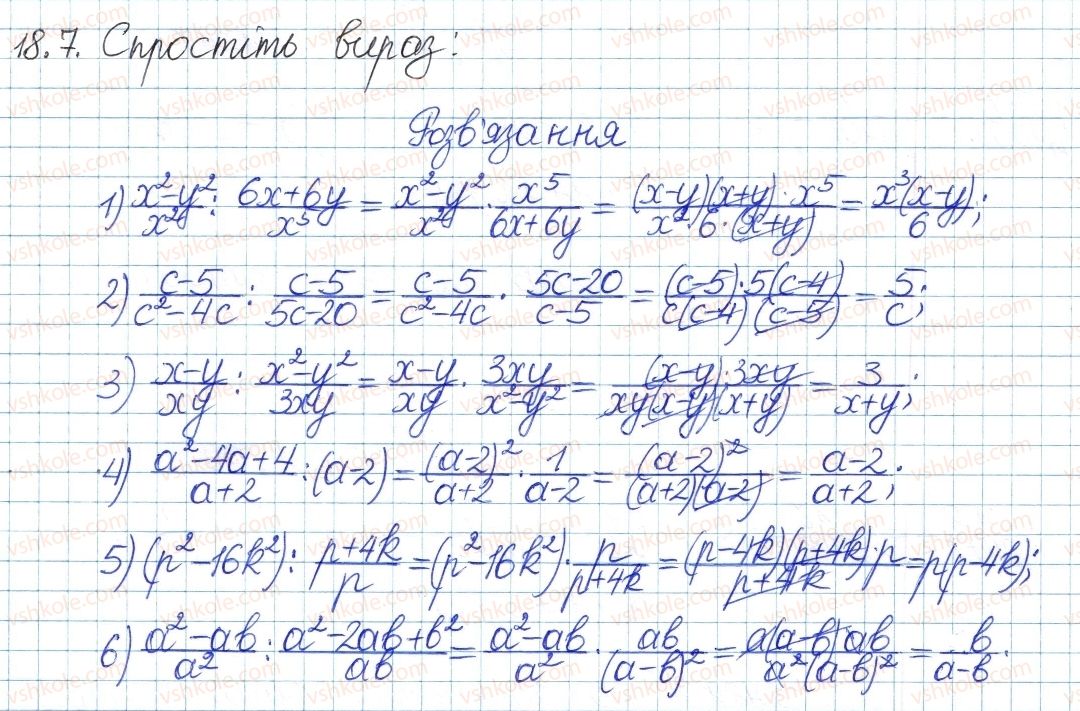 18.7. Спростіть вираз:
Розв'язання
1) \frac{x^2-y^2}{x^2} : \frac{6x+6y}{x^5} = \frac{x^2-y^2}{x^2} \cdot \frac{x^5}{6x+6y} = \frac{(x-y)(x+y) \cdot x^5}{x^2 \cdot 6 \cdot (x+y)} = \frac{x^3(x-y)}{6};
2) \frac{c-5}{c^2-4c} : \frac{c-5}{5c-20} = \frac{c-5}{c^2-4c} \cdot \frac{5c-20}{c-5} = \frac{(c-5) \cdot 5(c-4)}{c(c-4)(c-5)} = \frac{5}{c};
3) \frac{x-y}{xy} : \frac{x^2-y^2}{3xy} = \frac{x-y}{xy} \cdot \frac{3xy}{x^2-y^2} = \frac{(x-y) \cdot 3xy}{xy(x-y)(x+y)} = \frac{3}{x+y};
4) \frac{a^2-4a+4}{a+2} : (a-2) = \frac{(a-2)^2}{a+2} \cdot \frac{1}{a-2} = \frac{(a-2)^2}{(a+2)(a-2)} = \frac{a-2}{a+2};
5) (p^2-16k^2) : \frac{p+4k}{p} = (p^2-16k^2) \cdot \frac{p}{p+4k} = \frac{(p-4k)(p+4k) \cdot p}{p+4k} = p(p-4k);
6) \frac{a^2-ab}{a^2} : \frac{a^2-2ab+b^2}{ab} = \frac{a^2-ab}{a^2} \cdot \frac{ab}{(a-b)^2} = \frac{a(a-b) ab}{a^2(a-b)^2} = \frac{b}{a-b}.
vshkole.com